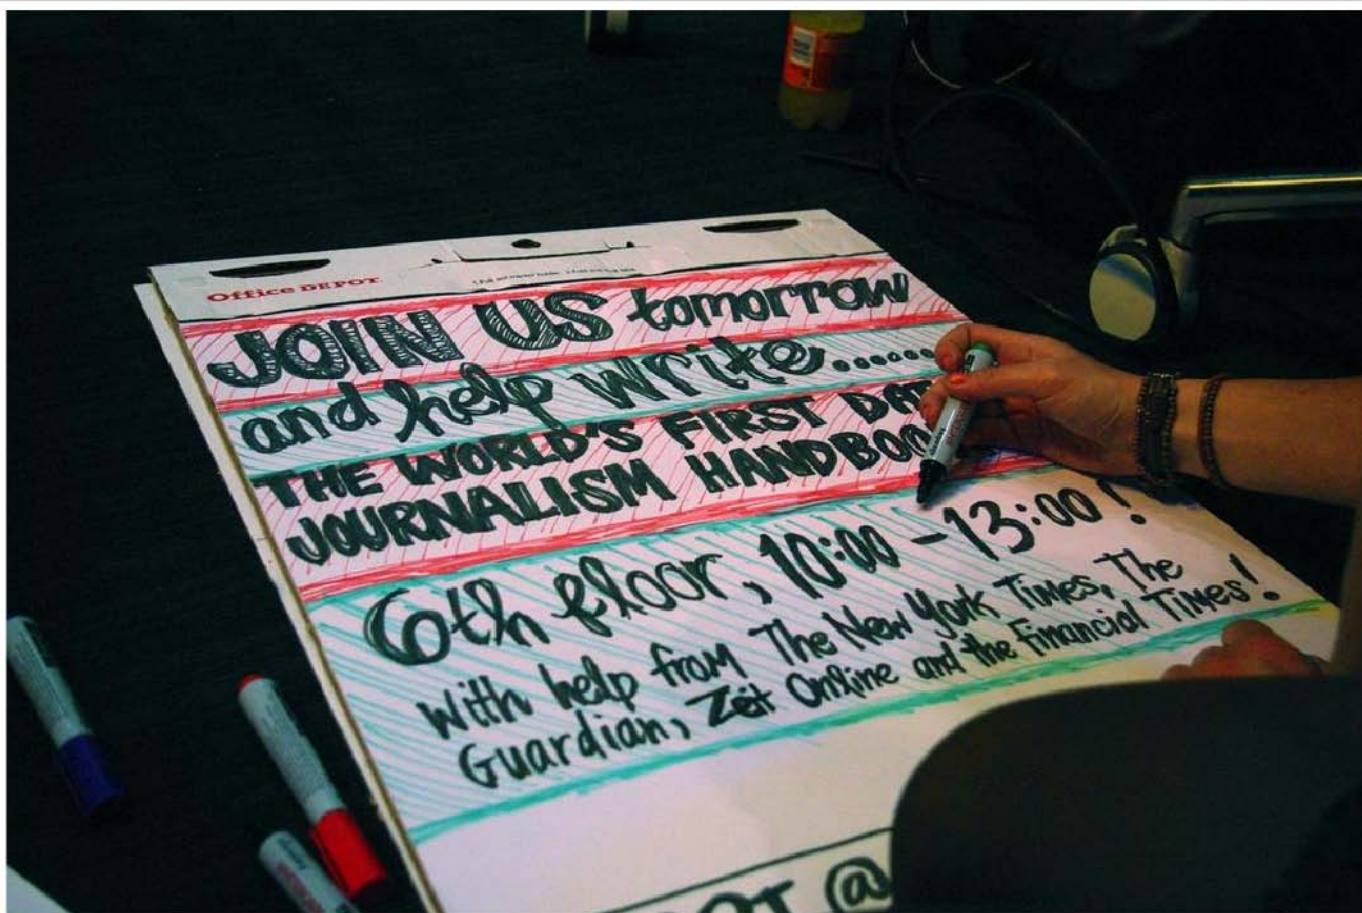 Office DEPOT
JOIN US tomorrow
and help write.......
THE WORLD'S FIRST
JOURNALISM
6th floor, 10:00 - 13:00!
with help from The New York Times, The
Guardian, Zeit Online and the Financial Times!
@